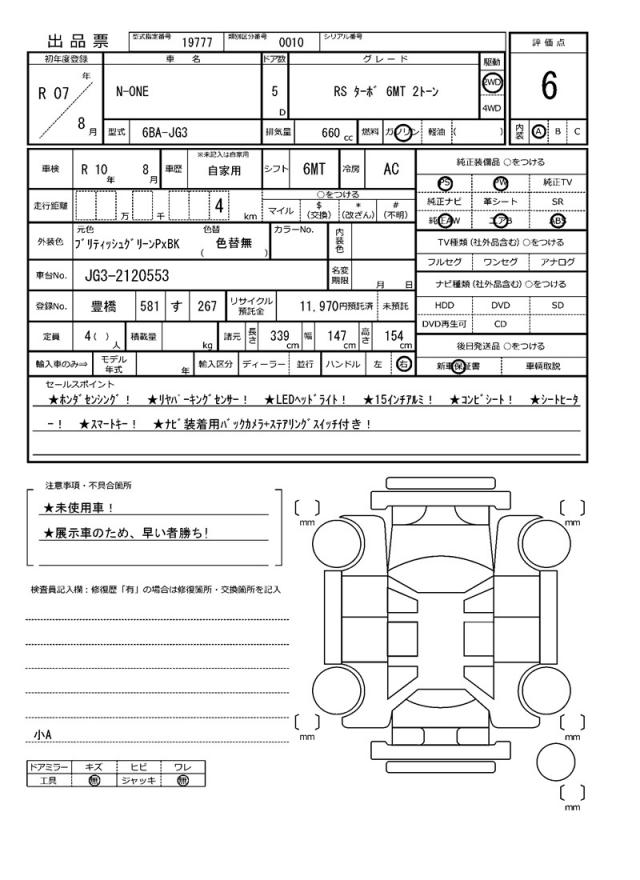 出品票 型式指定番号 19777 類別区分番号 0010 シリアル番号
評価点
6
内装 A B C
初年度登録 車名 ドア数 グレード 駆動
R 07 年 8 月 N-ONE 5 D RS ターボ 6MT 2トーン 2WD 4WD
型式 6BA-JG3 排気量 660 cc 燃料 ガソリン 軽油 ( )
車検 R 10 年 8 月 車歴 ※未記入は自家用 自家用 シフト 6MT 冷房 AC
走行距離 万 千 4 km ○をつける
マイル $(交換) *(改ざん) #(不明)
外装色 元色 ブリティッシュグリーンPxBK 色替 ( 色替無 ) カラーNo. 内装色
車台No. JG3-2120553 名変期限 月 日
登録No. 豊橋 581 す 267 リサイクル預託金 11,970円預託済 未預託
定員 4( ) 人 積載量 kg 諸元 長さ 339 cm 幅 147 cm 高さ 154 cm
輸入車のみ⇒ モデル年式 年 輸入区分 ディーラー 並行 ハンドル 左 右
純正装備品 ○をつける
PS PW 純正TV
純正ナビ 革シート SR
純正AW エアB ABS
TV種類(社外品含む) ○をつける
フルセグ ワンセグ アナログ
ナビ種類(社外品含む) ○をつける
HDD DVD SD
DVD再生可 CD
後日発送品 ○をつける
新車保証書 車輌取説
セールスポイント
★ホンダセンシング! ★リヤパーキングセンサー! ★LEDヘッドライト! ★15インチアルミ! ★コンビシート! ★シートヒータ
ー! ★スマートキー! ★ナビ装着用バックカメラ+ステアリングスイッチ付き!
注意事項・不具合箇所
★未使用車!
★展示車のため、早い者勝ち!
検査員記入欄:修復歴「有」の場合は修復箇所・交換箇所を記入
小A
ドアミラー キズ ヒビ ワレ
工具 無 ジャッキ 無
[ ] mm
[ ] mm
[ ] mm
[ ] mm
[ ] mm